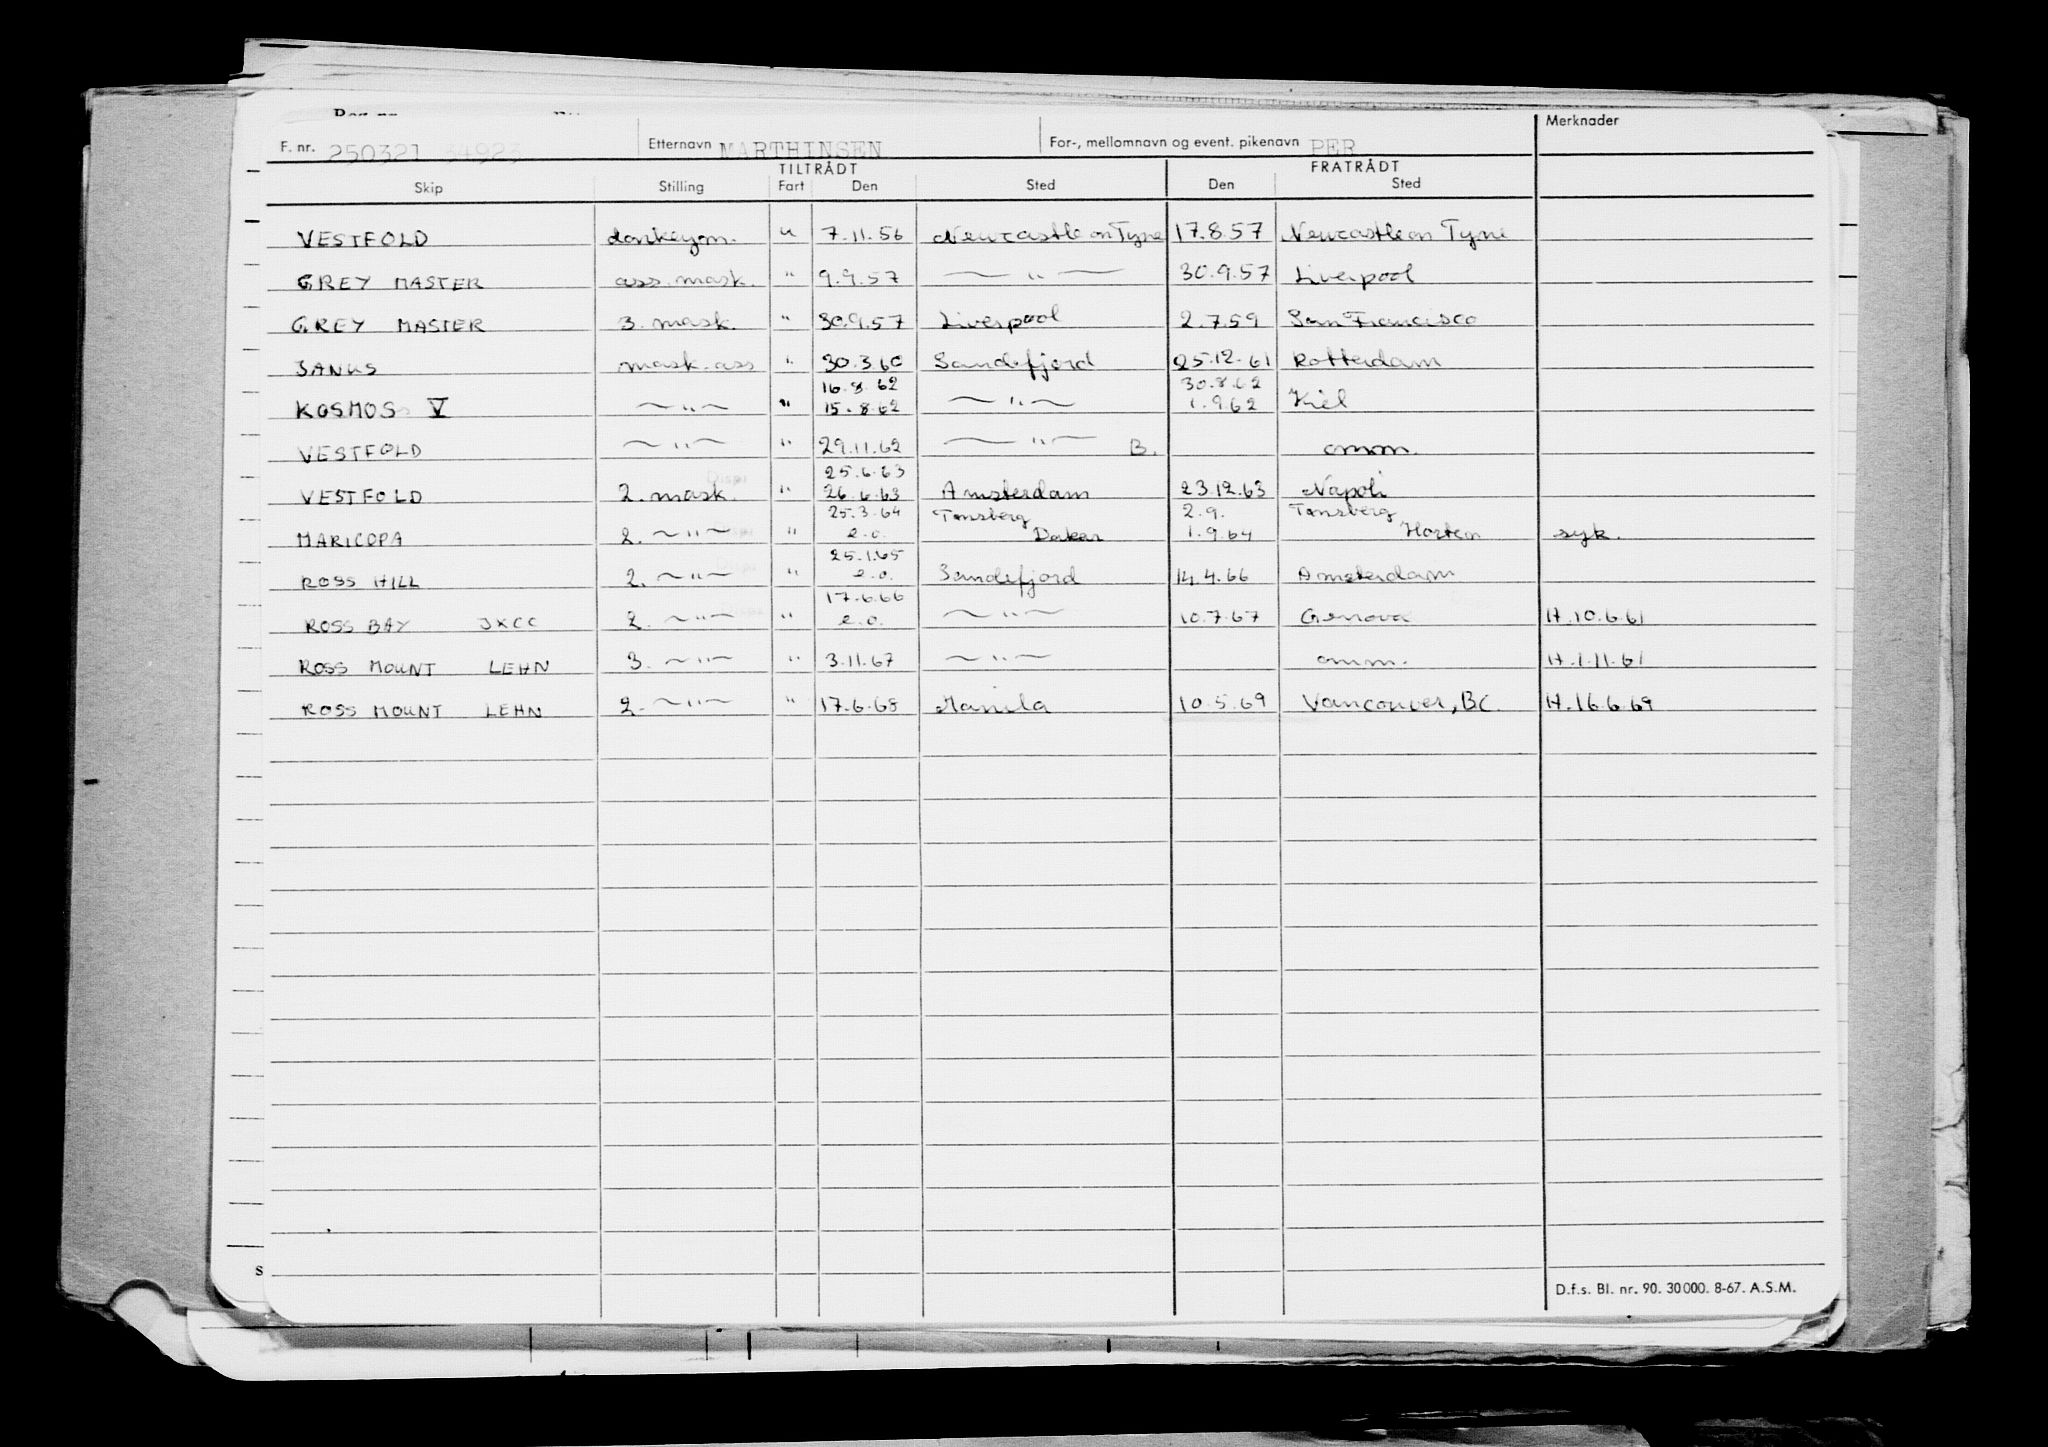 F. nr. 250321 34923 Etternavn MARTHINSEN For-, mellomnavn og event. pikenavn PER Merknader
TILTRÅDT FRATRÅDT
Skip Stilling Fart Den Sted Den Sted
VESTFOLD donkeym. u 7.11.56 Newcastle on Tyne 17.8.57 Newcastle on Tyne
GREY MASTER ass. mask. " 9.9.57 — " — 30.9.57 Liverpool
GREY MASTER 3. mask. " 30.9.57 Liverpool 2.7.59 San Francisco
JANUS mask. ass " 30.3.60 Sandefjord 25.12.61 Rotterdam
16.8.62 30.8.62
KOSMOS V — " — " 15.8.62 — " — 1.9.62 Kiel
VESTFOLD — " — " 29.11.62 — " — B. omm.
25.6.63
VESTFOLD 2. mask. " 26.6.63 Amsterdam 23.12.63 Napoli
25.3.64 Tønsberg 2.9. Tønsberg
MARICOPA 2. — " — " e.o. Dakar 1.9.64 Horten syk.
25.1.65
ROSS HILL 2. — " — " e.o. Sandefjord 14.4.66 Amsterdam
17.6.66
ROSS BAY JXCC 2. — " — " e.o. — " — 10.7.67 Genova H.10.6.61
ROSS MOUNT LEHN 3. — " — " 3.11.67 — " — omm. H.1.11.61
ROSS MOUNT LEHN 2. — " — " 17.6.68 Manila 10.5.69 Vancouver, BC. H.16.6.69
s
D.f.s. Bl. nr. 90. 30000. 8-67. A.S.M.